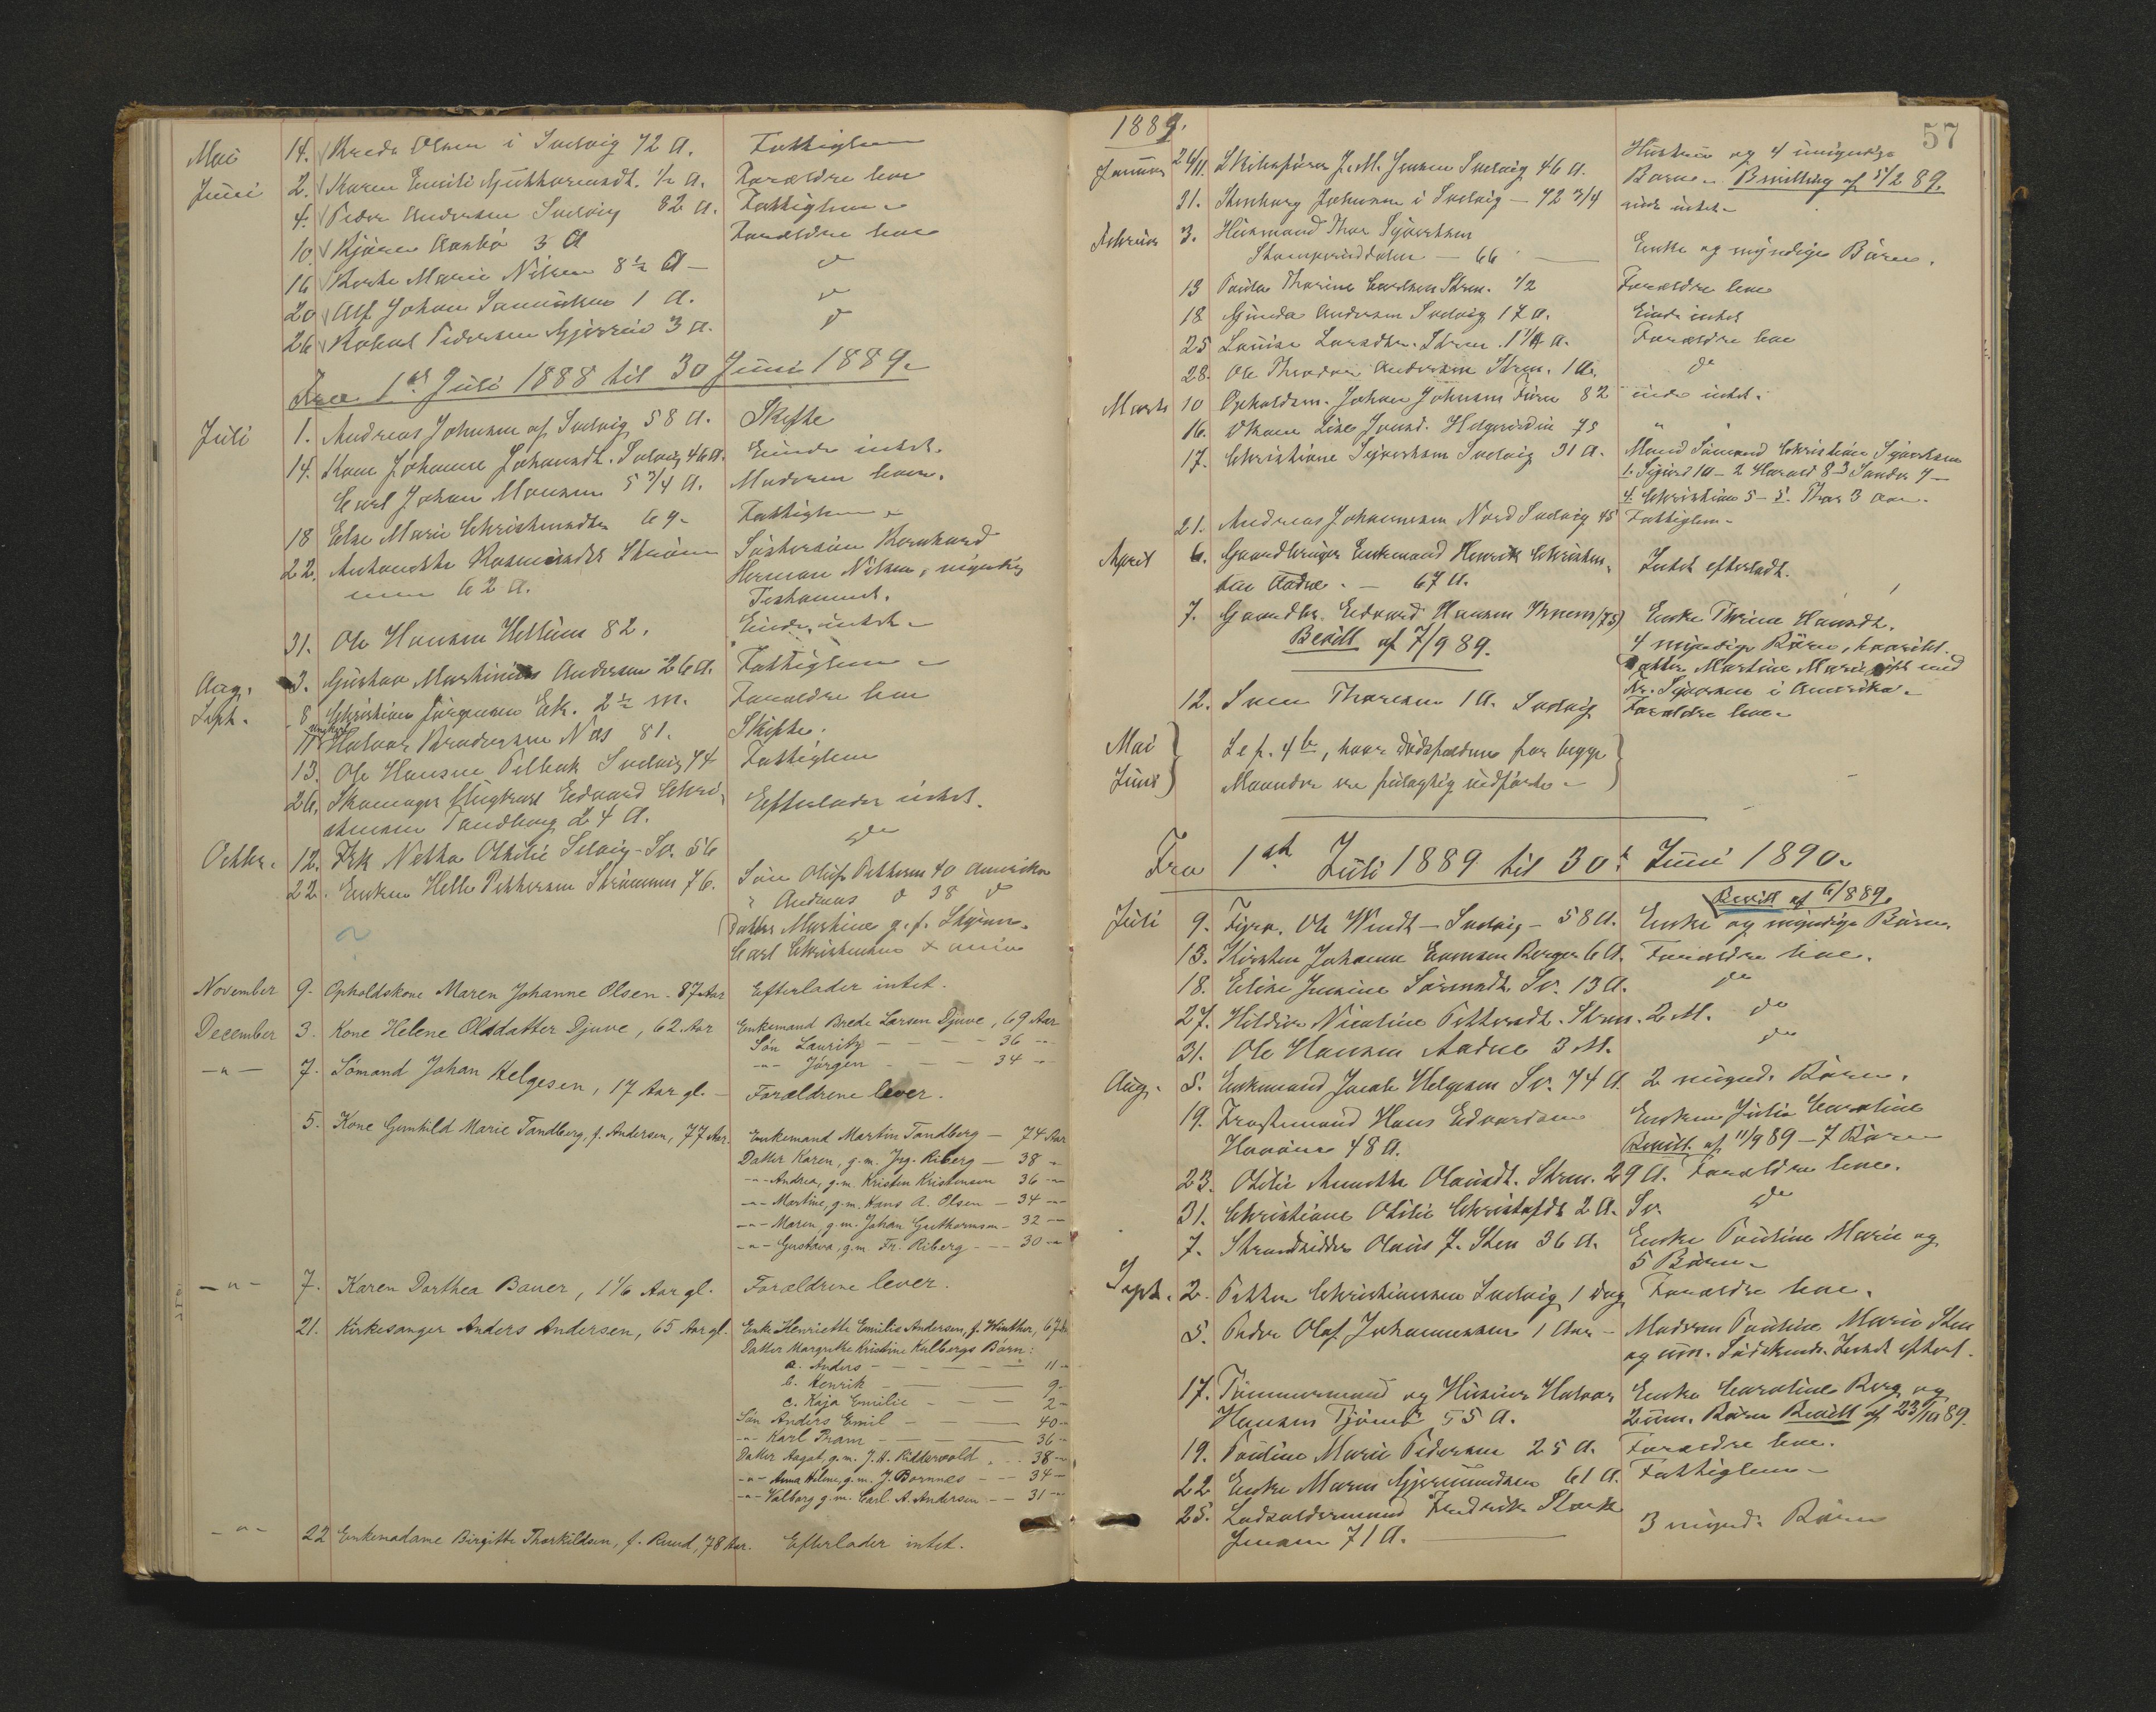 Mai 14. Brede Olsen i Svelvig 72 A. Fattiglem
Juni 2. Karen Emilie Guthormsdt. 1/2 A. Forældre leve
4. Peder Andersen Svelvig 82 A. Fattiglem
10. 3 A Forældre leve
16 Marie Nilsen 8 1/2 A - do
20 Alf Johan 1 A. do
26 Pedersen 3 A. do
Fra 1ste Juli 1888 til 30 Juni 1889.
Juli 1. Andreas Johnsen af Svelvig 58 A. Skifte
14. Kone Johanne Johansdt. Svelvig 46 A. Eiende intet.
Carl Johan Monsen 5 3/4 A. Moderen lever.
18 Else Marie 69 Fattiglem
22. Søstersøn Bernhard
62 A. Herman Nilsen, myndig
Testament.
31. Ole Hansen Hellum 82. Eiende intet
Aug. 3. Gustav Martinius Andersen 26 A. Fattiglem
Sept. 8 Christian Jørgensen Eek. 2 1/2 M. Forældre leve
11 Halvor Næs 81. Skifte.
13. Ole Hansen Svelvig 74 Fattiglem
26. Skomager Ungkarl Edvard Chri-
stensen Tandberg 24 A. Efterlader intet.
Octbr. 12. Frk Netha Othilie Solvig - Sv. 56 do
22. Enken Helle Pettersen Strømmen 76. Søn Oluf Pettersen 40 Amerika
" Andreas do 38 do
Datter Martine g. f.
Carl Christensen
November 9. Opholdskone Maren Johanne Olsen. 87 Aar Efterlader intet.
December 3. Kone Helene Olsdatter Djuve, 62 Aar Enkemand Brede Larsen Djuve, 69 Aar
Søn Lauritz - - - 36 -"-
-"- Jørgen - - - 34 -"-
-"- 7. Sømand Johan Helgesen, 17 Aar gl. - Forældrene lever.
5. Kone Gunhild Marie Tandberg, f. Andersen, 77 Aar. Enkemand Martin Tandberg - 74 Aar
Datter Karen, g.m. Jrg. Riberg - 38 -
-"- Andrea, g.m. Kristen Kristensen 36 -"-
-"- Martine, g.m. Hans A. Olsen - 34 -"-
-"- Maren, g.m. Johan Guthormsen - 32 -"-
-"- Gustava, g.m. Fr. Riberg - - - 30 -"-
-"- 7. Karen Dorthea Bauer, 1 1/6 Aar gl. Forældrene lever.
21. Kirkesanger Anders Andersen, 65 Aar gl. Enke Henriette Emilie Andersen, f. Winther, 67 A
Datter Margrethe Kristine Kulbergs Børn:
a. Anders - - - - - 11 -
b. Henrik - - - 9 -
c. Kaja Emilie - - - 2 -
Søn Anders Emil - - - 40 -
-"- Karl Bram - - - 36 -
Datter Aagot, g.m. J. H. Riddervold - - 38 -
-"- Anna Helene, g.m. J. Bornnes - - 34 -
-"- Valborg g.m. Carl A. Andersen - - 31 -"-
-"- 22 Enkemadame Birgitte Thorkildsen, f. Ruud, 78 Aar. Efterlader intet.
1889.
57
Januar 24/11. Skibsfører J. M. Jensen Svelvig 46 A. Hustru og 4 umyndige
Børn - Bevilling af 5/2 89.
31. Johnsen i Svelvig - 72 3/4 eiede intet -
Februar 3. Huusmand Thor Syvertsen
- 66 Enke og myndige Børn.
13 Thorine Strm. 1/2 Forældre leve
18 Gunda Andersen Svelvig 17 A. Eiede intet
25 Louise Larsdtr. Strm. 1 1/4 A. Forældre leve
28. Ole Theodor Andersen Strm. 1 A. do
Marts 10 Opholdsm. Johan Johnsen 82 eiede intet.
16. 75 "
17. Christiane Syvertsen Svelvig 31 A. Mand Sømand Christian Syvertsen
1. Sigurd 10 - 2 Harald 8 3 Sander 7 -
4. Christian 5 - 5. Thor 3 Aar.
21. Andreas Johannesen Nord Svelvig 45 Fattiglem -
April 6. Gaardbruger Enkemand Henrik Christen-
sen Aadne. - 67 A. Intet efterladt.
7. Gaardbr. Edvard Hansen (75) Enke Thrine Hansdt.
Bevill af 7/9 89. 4 myndige Børn, hvoribl.
Datter Martine Marie gift med
Kr. Syversen i Amerika.
12. Sven Thoresen 1 A. Svelvig Forældre leve -
Mai
Juni
Se f. 4 b, hvor Dødsfaldene for begge
Maaneder ere feilagtig indførte -
Fra 1st Juli 1889 til 30t Juni 1890.
Bevill af 6/8 89.
Juli 9. Ole Windt - Svelvig - 58 A. Enke og myndige Børn.
13. Kirsten Johanne Berger 6 A. Forældre leve.
18. Elise Sv. 13 A. do
27. Nicoline Strm. 2 M. do
31. Ole Hansen Aadne 3 M. do
Aug. 5. Enkemand Jacob Helgesen Sv. 74 A 2 mynd. Børn.
19. Hans Edvardsen Enken Julie Caroline
48 A. Bevill. af 11/9 89 - 7 Børn
23. Otilie Annette Olausdt. Strm. 29 A. Forældre leve.
31. Christiane Otilie Christofdt. 2 A. Sv. do
7. Strandsidder Olaus J. Sten 36 A. Enke Pauline Marie og
5 Børn -
Sept. 2. Petter Christiansen Svelvig 1 Dag Forældre leve.
5. Peder Olaf Johannessen 1 Aar - Moderen Pauline Marie Sten
og um. Intet efterl.
17. Tømmermand og Huseier Halvor Enke Caroline Berg og
Hansen Tjømø 55 A. 2 um. Børn Bevill af 23/10 89.
19. Pauline Marie Pedersen 25 A. Forældre leve.
22 Enke Maren Gjermundsen 61 A. Fattiglem -
25. Lodsoldermand Fredrik Stork
Jensen 71 A. 3 mynd. Børn